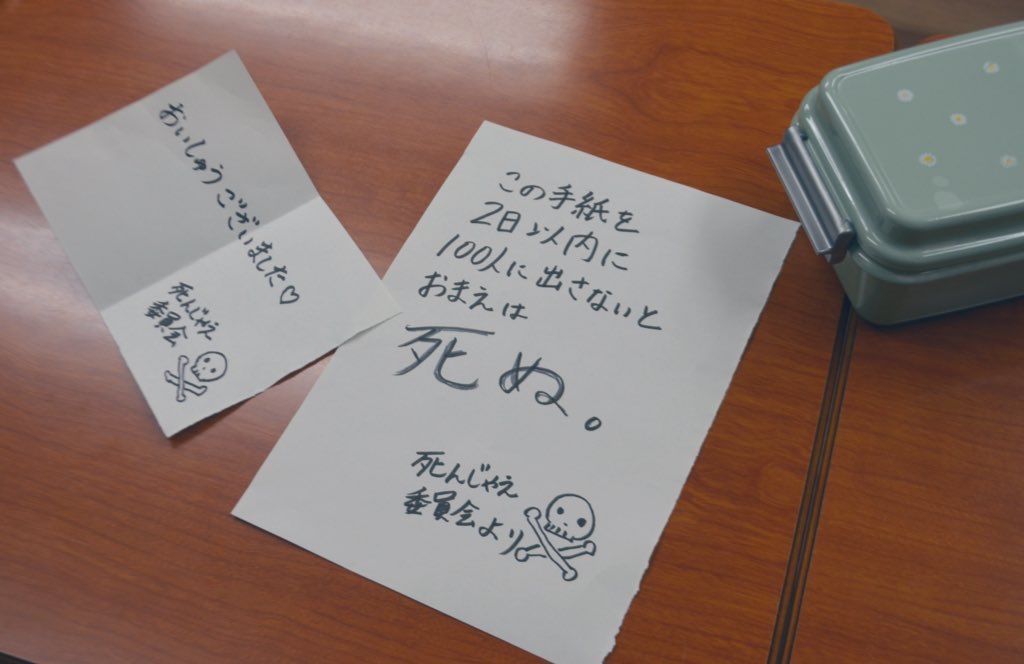 おいしゅうございました♡
死んじゃえ
委員会
この手紙を
2日以内に
100人に出さないと
おまえは
死ぬ。
死んじゃえ
委員会より